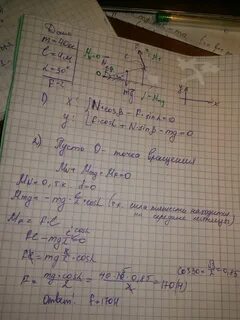 Дано
m=40кг
l=4м
L=30°
F-?
1) x: { N·cosβ - F·sinL=0
y: { F·cosL + N·sinβ - mg=0
2) Пусть O - точка вращения
M_N + M_mg + M_F = 0
M_N=0, т.к. d=0
M_mg = -mg·l/2·cosL (т.к. сила тяжести находится
на середине лестницы)
M_F = F·l
Fl - mg l/2 cosL = 0
Fl = mg l/2 · cosL
F = mg·cosL/2 = 40·10·0,85/2 = 170(Н)
cos30 = √3/2 = 0,85
Ответ: F=170Н